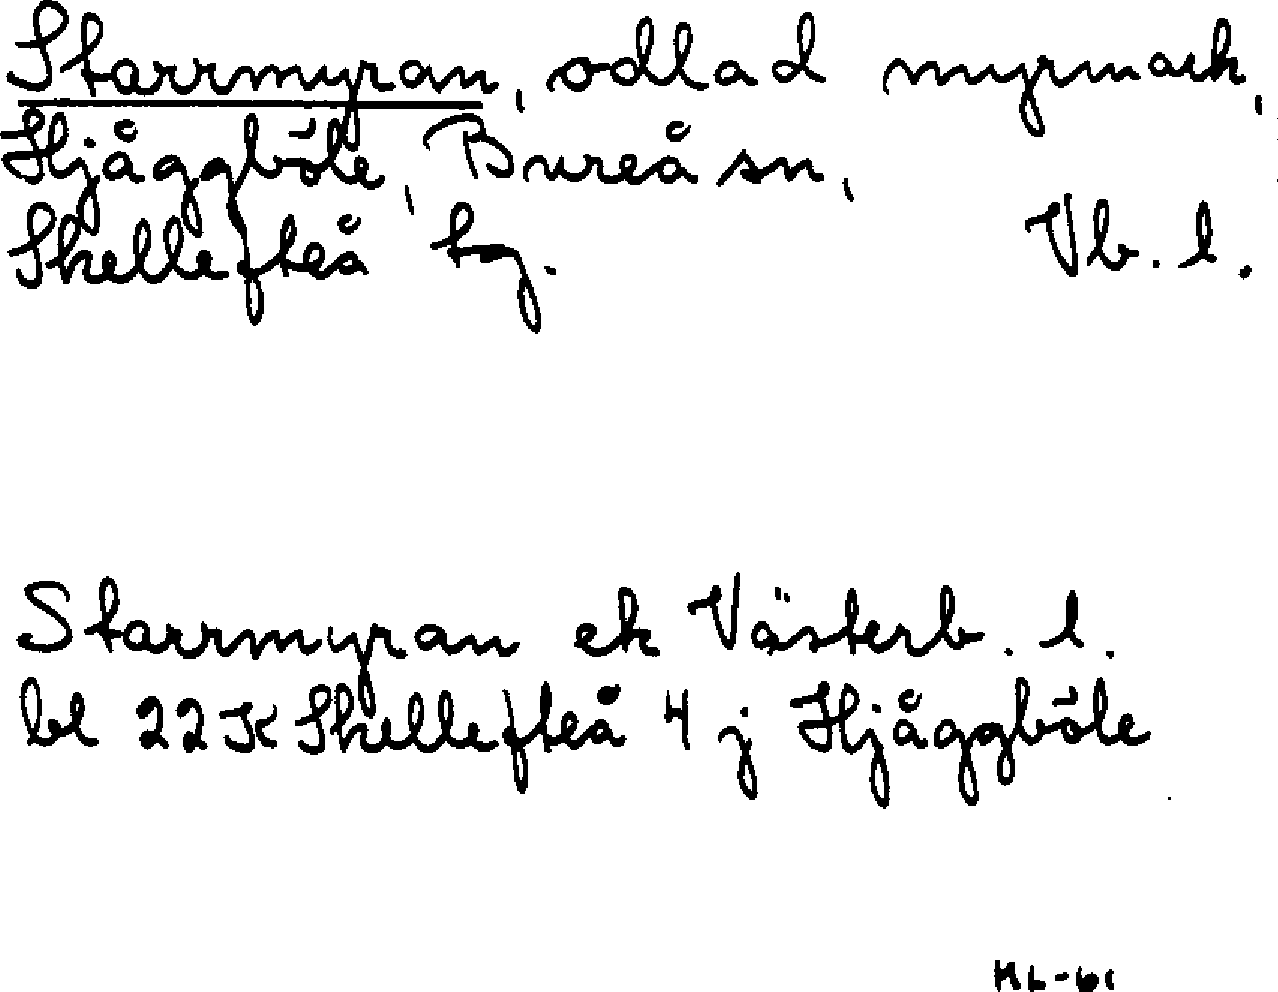 Starrmyran, odlad myrmark,
Hjåggböle, Bureå sn,
Skellefteå tg. Vb. l.
Starrmyran ek Västerb. l.
bl 22K Skellefteå 4 j Hjåggböle